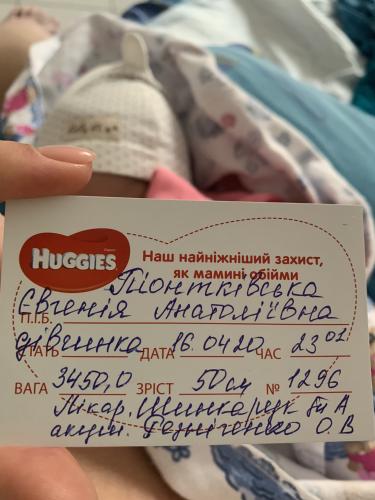 HUGGIES
Наш найніжніший захист,
як мамині обійми
Піонтківська
П.І.Б. Євгенія Анатоліївна
СТАТЬ дівчинка ДАТА 16.04.20 ЧАС 23 01
ВАГА 3450,0 ЗРІСТ 50 см № 1296
Лікар. Шинкарук
акуш. О. В